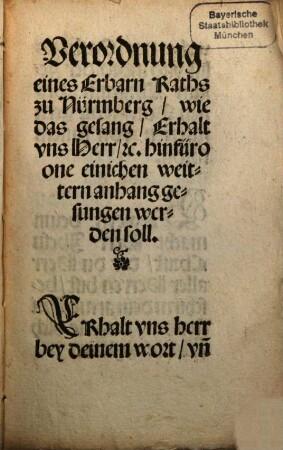 Bayerische
Staatsbibliothek
München
Verordnung
eines Erbarn Raths
zu Nürmberg / wie
das gesang / Erhalt
vns Herr / ꝛc. hinfüro
one einichen weit⸗
tern anhang ge⸗
sungen wer⸗
den soll.
ERhalt vns herr
bey deinem wort / vñ